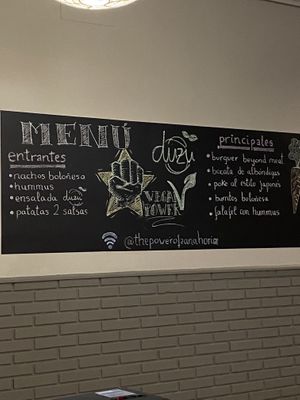 MENÚ
entrantes
• nachos boloñesa
• hummus
• ensalada duzu
• patatas 2 salsas
duzu
VEGAN
POWER
principales
• burguer beyond meal
• bocata de albóndigas
• poke al estilo japonés
• burritos boloñesa
• falafel con hummus
@thepowerofzanahoria